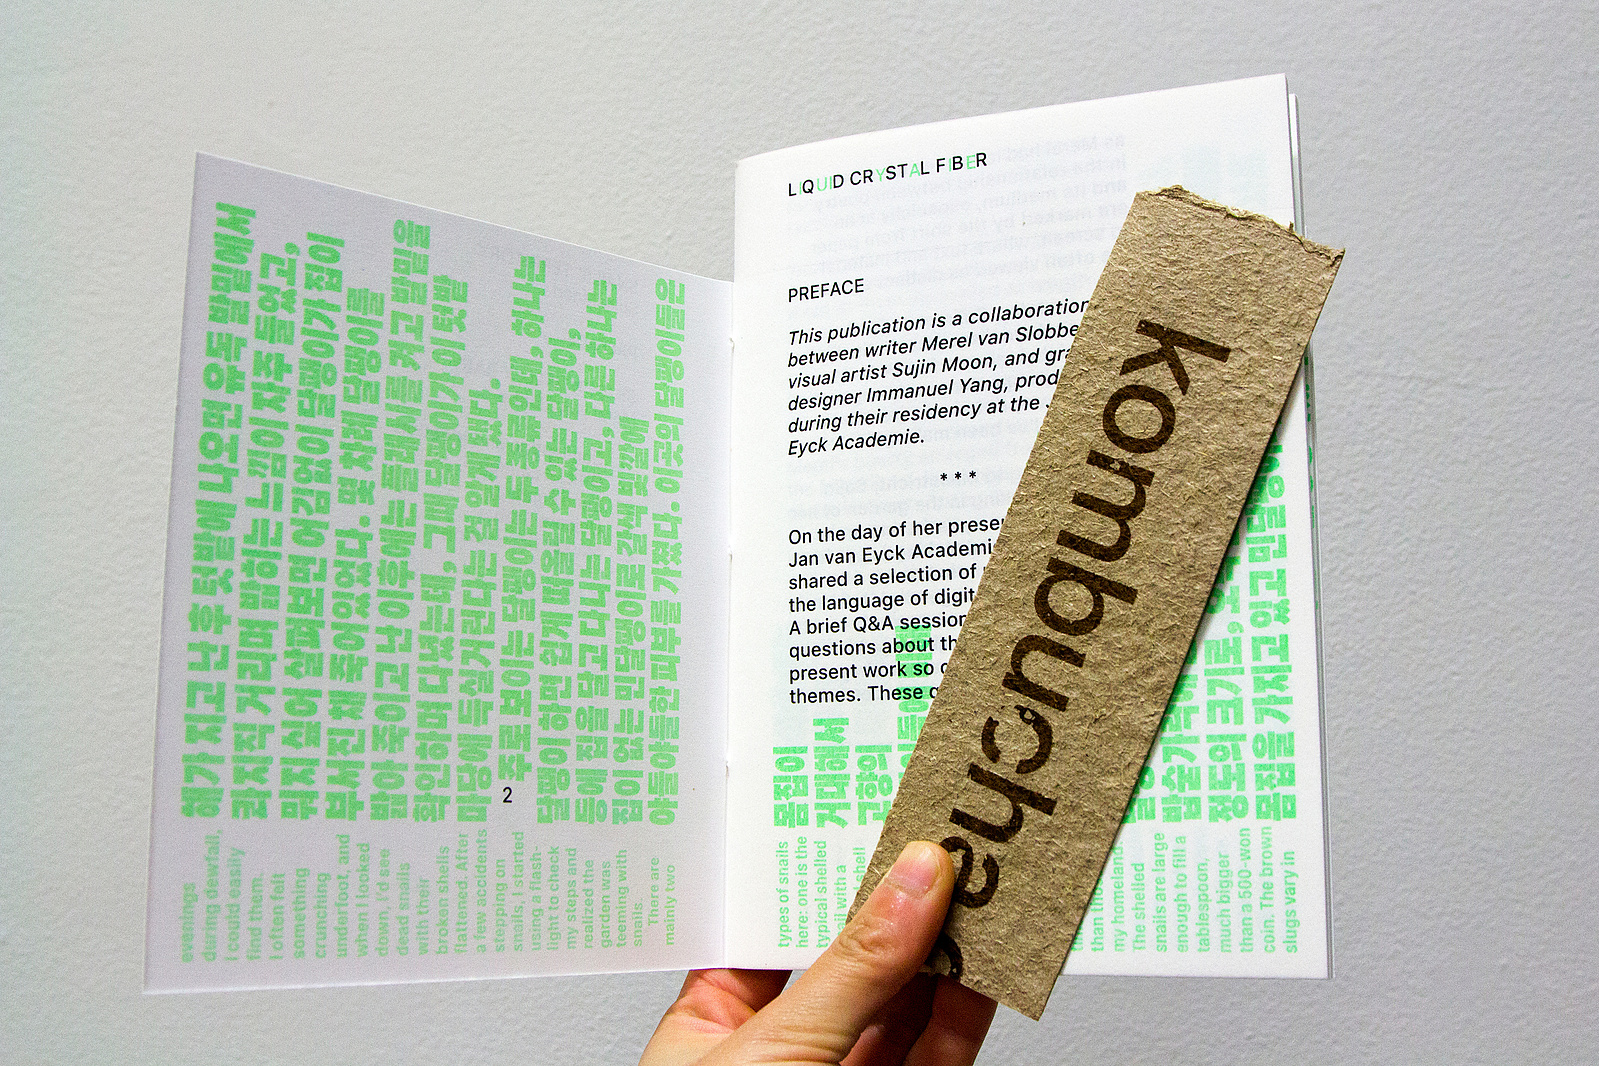 해가 지고 난 후 텃밭에 나오면 유독 발밑에서
콰지직 거리며 밟히는 느낌이 자주 들었고,
뭐지 싶어 살펴보면 어김없이 달팽이가 집이
부서진 채 죽어있었다. 몇 차례 달팽이를
밟아 죽이고 난 이후에는 플래시를 켜고 발밑을
확인하며 다녔는데, 그때 달팽이가 이 텃밭
마당에 득실거린다는 걸 알게 됐다.
주로 보이는 달팽이는 두 종류인데, 하나는
달팽이 하면 쉽게 떠올릴 수 있는 달팽이,
등에 집을 달고 다니는 달팽이고, 다른 하나는
집이 없는 민달팽이로 갈색 빛깔에
야들야들한 피부를 가졌다. 이곳의 달팽이들은
evenings
during dewfall,
I could easily
find them.
I often felt
something
crunching
underfoot, and
when I looked
down, I'd see
dead snails
with their
broken shells
flattened. After
a few accidents
stepping on
snails, I started
using a flash-
light to check
my steps and
realized the
garden was
teeming with
snails.
There are
mainly two
2
LIQUID CRYSTAL FIBER
PREFACE
This publication is a collaboration
between writer Merel van Slobbe
visual artist Sujin Moon, and
designer Immanuel Yang,
during their residency at the
Eyck Academie.
* * *
On the day of her
Jan van Eyck
shared a selection of
the language of
A brief Q&A session
questions about
present work so
themes. These
몸집이
거대해서
고향의
정도의 크기로,
몸집을 가지고 있고
types of snails
here: one is the
typical shelled
with a
shell
than
my homeland.
The shelled
snails are large
enough to fill a
tablespoon,
much bigger
than a 500-won
coin. The brown
slugs vary in
Kombuche